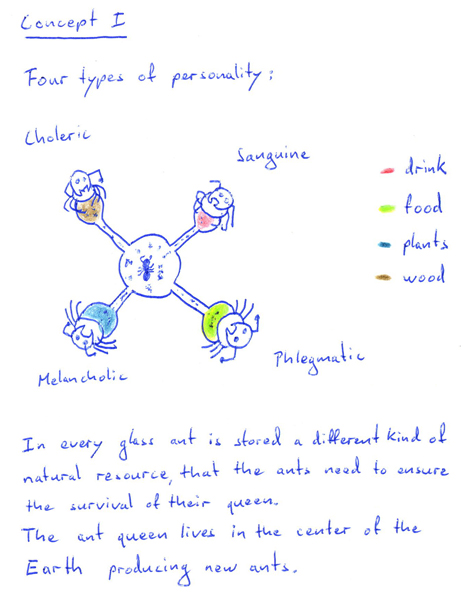 Concept I
Four types of personality:
Choleric
Sanguine
drink
food
plants
wood
Melancholic
Phlegmatic
In every glass ant is stored a different kind of
natural resource, that the ants need to ensure
the survival of their queen.
The ant queen lives in the center of the
Earth producing new ants.